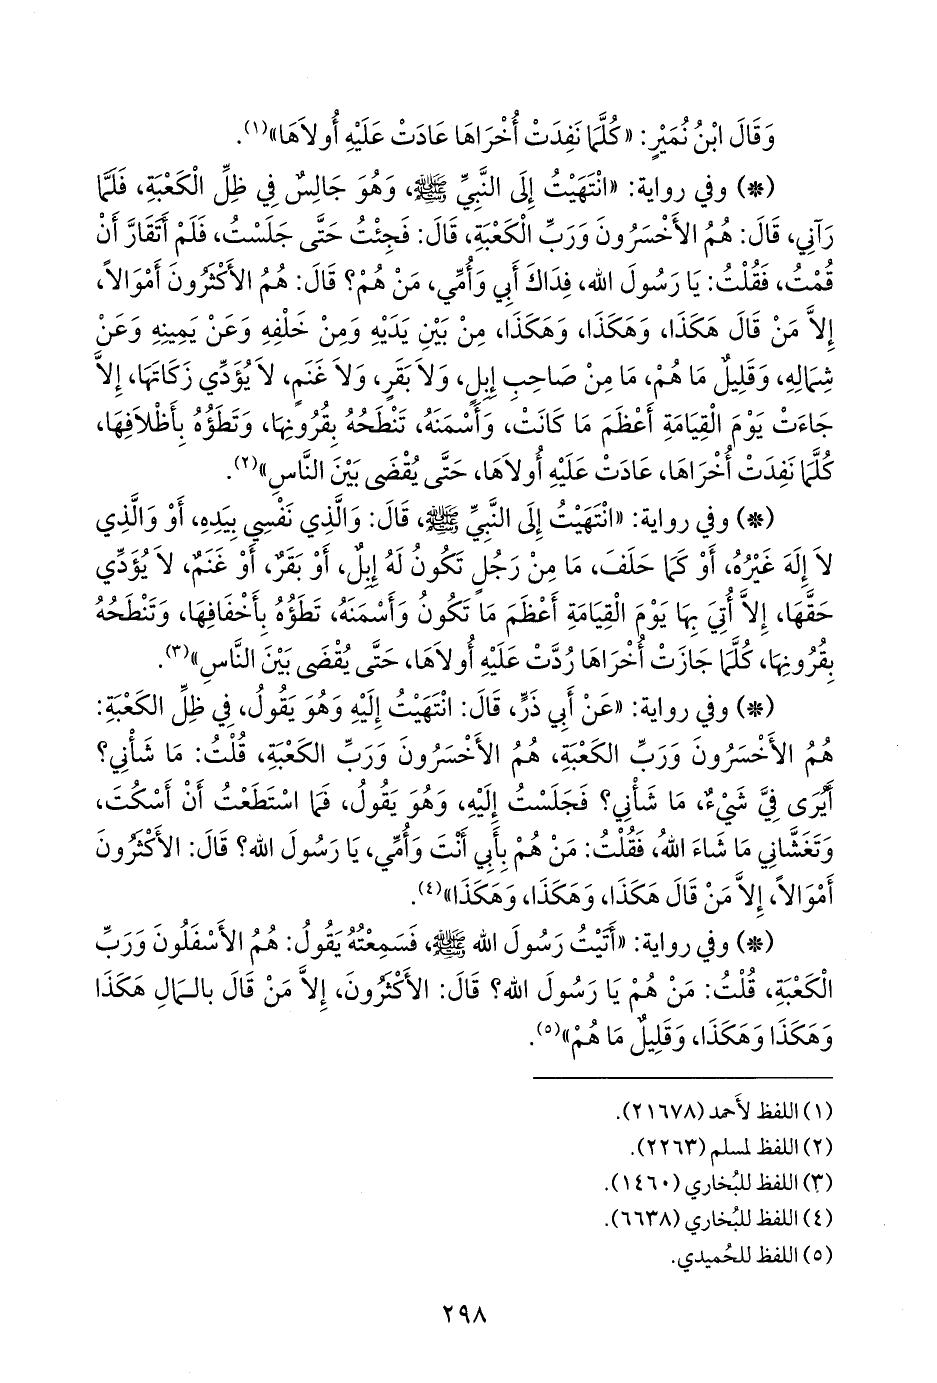 وَقَالَ ابْنُ نُمَيْرٍ: «كُلَّمَا نَفِدَتْ أُخْرَاهَا عَادَتْ عَلَيْهِ أُولاَهَا»(١).
(*) وفي رواية: «انْتَهَيْتُ إِلَى النَّبِيِّ ﷺ، وَهُوَ جَالِسٌ فِي ظِلِّ الْكَعْبَةِ، فَلَمَّا
رَآنِي، قَالَ: هُمُ الأَخْسَرُونَ وَرَبِّ الْكَعْبَةِ، قَالَ: فَجِئْتُ حَتَّى جَلَسْتُ، فَلَمْ أَتَقَارَّ أَنْ
قُمْتُ، فَقُلْتُ: يَا رَسُولَ الله، فِدَاكَ أَبِي وَأُمِّي، مَنْ هُمْ؟ قَالَ: هُمُ الأَكْثَرُونَ أَمْوَالاً،
إِلاَّ مَنْ قَالَ هَكَذَا، وَهَكَذَا، وَهَكَذَا، مِنْ بَيْنِ يَدَيْهِ وَمِنْ خَلْفِهِ وَعَنْ يَمِينِهِ وَعَنْ
شِمَالِهِ، وَقَلِيلٌ مَا هُمْ، مَا مِنْ صَاحِبِ إِبِلٍ، وَلاَ بَقَرٍ، وَلاَ غَنَمٍ، لاَ يُؤَدِّي زَكَاتَهَا، إِلاَّ
جَاءَتْ يَوْمَ الْقِيَامَةِ أَعْظَمَ مَا كَانَتْ، وَأَسْمَنَهُ، تَنْطَحُهُ بِقُرُونِهَا، وَتَطَؤُهُ بِأَظْلاَفِهَا،
كُلَّمَا نَفِدَتْ أُخْرَاهَا، عَادَتْ عَلَيْهِ أُولاَهَا، حَتَّى يُقْضَى بَيْنَ النَّاسِ»(٢).
(*) وفي رواية: «انْتَهَيْتُ إِلَى النَّبِيِّ ﷺ، قَالَ: وَالَّذِي نَفْسِي بِيَدِهِ، أَوْ وَالَّذِي
لاَ إِلَهَ غَيْرُهُ، أَوْ كَمَا حَلَفَ، مَا مِنْ رَجُلٍ تَكُونُ لَهُ إِبِلٌ، أَوْ بَقَرٌ، أَوْ غَنَمٌ، لاَ يُؤَدِّي
حَقَّهَا، إِلاَّ أُتِيَ بِهَا يَوْمَ الْقِيَامَةِ أَعْظَمَ مَا تَكُونُ وَأَسْمَنَهُ، تَطَؤُهُ بِأَخْفَافِهَا، وَتَنْطَحُهُ
بِقُرُونِهَا، كُلَّمَا جَازَتْ أُخْرَاهَا رُدَّتْ عَلَيْهِ أُولاَهَا، حَتَّى يُقْضَى بَيْنَ النَّاسِ»(٣).
(*) وفي رواية: «عَنْ أَبِي ذَرٍّ، قَالَ: انْتَهَيْتُ إِلَيْهِ وَهُوَ يَقُولُ، فِي ظِلِّ الكَعْبَةِ:
هُمُ الأَخْسَرُونَ وَرَبِّ الكَعْبَةِ، هُمُ الأَخْسَرُونَ وَرَبِّ الكَعْبَةِ، قُلْتُ: مَا شَأْنِي؟
أَيُرَى فِيَّ شَيْءٌ، مَا شَأْنِي؟ فَجَلَسْتُ إِلَيْهِ، وَهُوَ يَقُولُ، فَمَا اسْتَطَعْتُ أَنْ أَسْكُتَ،
وَتَغَشَّانِي مَا شَاءَ اللهُ، فَقُلْتُ: مَنْ هُمْ بِأَبِي أَنْتَ وَأُمِّي، يَا رَسُولَ الله؟ قَالَ: الأَكْثَرُونَ
أَمْوَالاً، إِلاَّ مَنْ قَالَ هَكَذَا، وَهَكَذَا، وَهَكَذَا»(٤).
(*) وفي رواية: «أَتَيْتُ رَسُولَ الله ﷺ، فَسَمِعْتُهُ يَقُولُ: هُمُ الأَسْفَلُونَ وَرَبِّ
الْكَعْبَةِ، قُلْتُ: مَنْ هُمْ يَا رَسُولَ الله؟ قَالَ: الأَكْثَرُونَ، إِلاَّ مَنْ قَالَ بالـمَالِ هَكَذَا
وَهَكَذَا وَهَكَذَا، وَقَلِيلٌ مَا هُمْ»(٥).
(١) اللفظ لأَحمد (٢١٦٧٨).
(٢) اللفظ لمسلم (٢٢٦٣).
(٣) اللفظ للبُخاري (١٤٦٠).
(٤) اللفظ للبُخاري (٦٦٣٨).
(٥) اللفظ للحُميدي.
٢٩٨